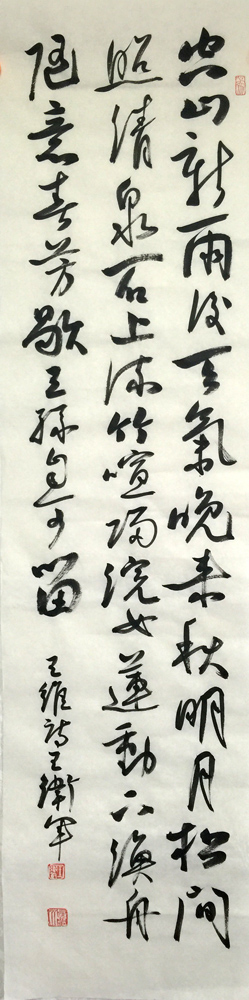 空山新雨后天氣晚来秋明月松間
照清泉石上流竹喧歸浣女蓮動下漁舟
随意春芳歇王孫自可留
王維詩王衛軍